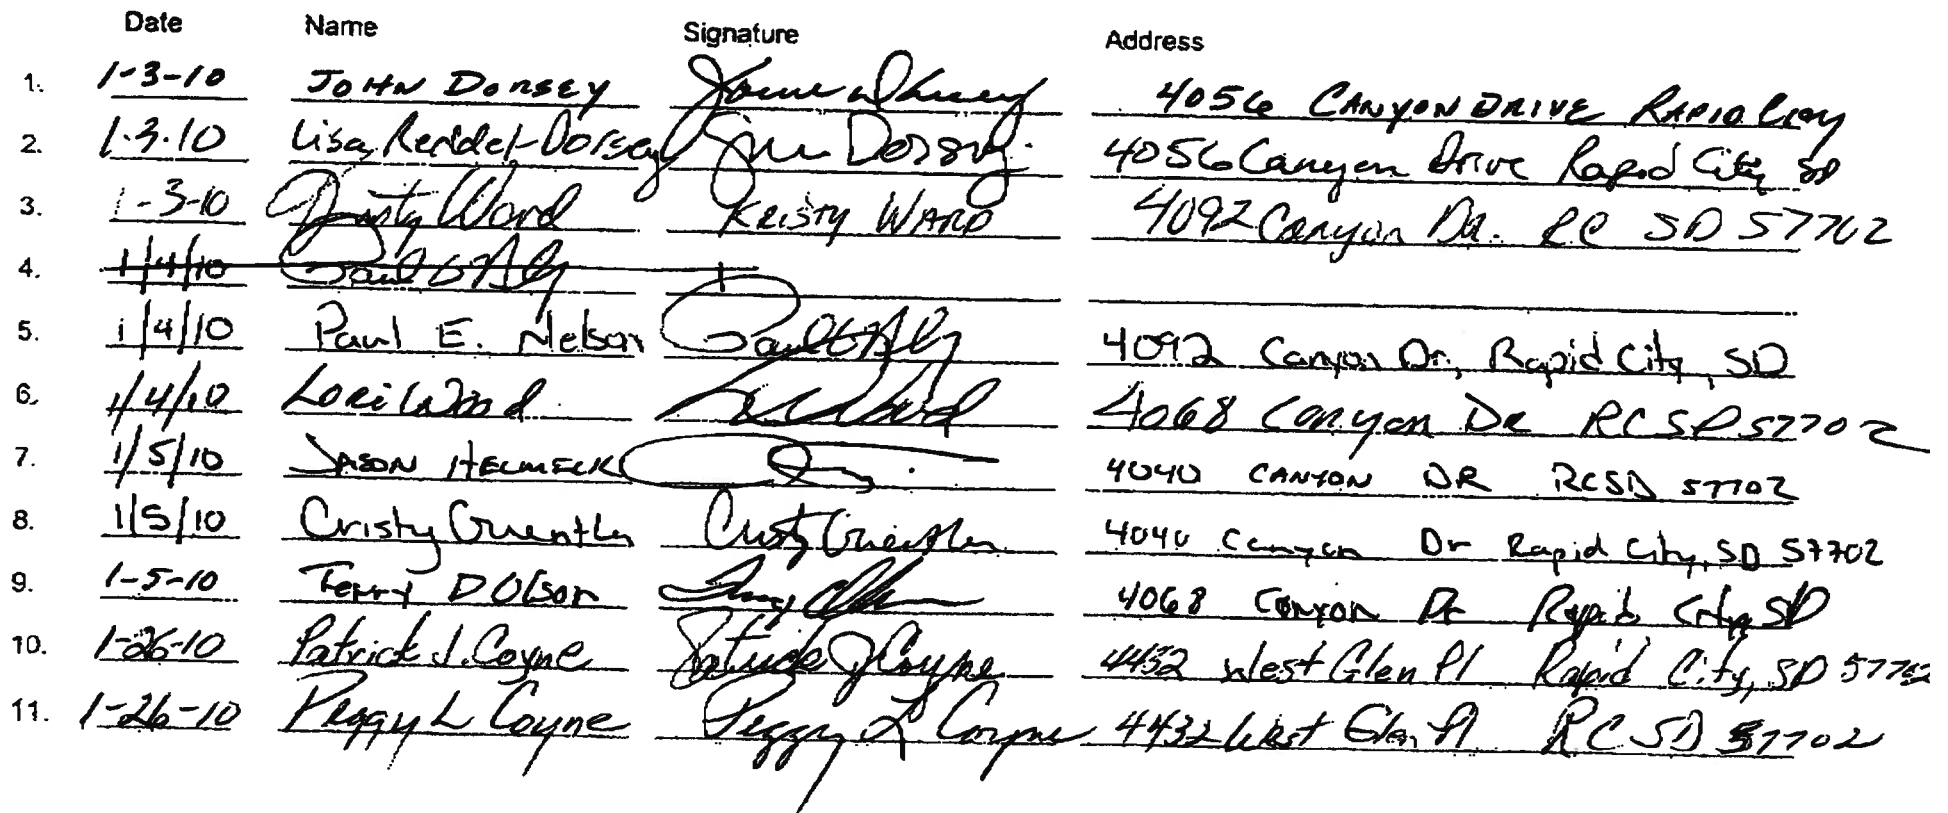 Date Name Signature Address
1. 1-3-10 JOHN DORSEY 4056 CANYON DRIVE RAPID City
2. 1.3.10 Lisa Dorsey 4056 Canyon Drive Rapid City SD
3. 1-3-10 Kristy Ward KRISTY WARD 4092 Canyon Dr. RC SD 57702
4. 1/4/10
5. 1/4/10 Paul E. Nelson 4092 Canyon Dr, Rapid City, SD
6. 1/4/10 Lori Ward 4068 Canyon Dr RCSD 57702
7. 1/5/10 JASON 4040 CANYON DR RCSD 57702
8. 1/5/10 Cristy Guenther Cristy Guenther 4040 Canyon Dr Rapid City, SD 57702
9. 1-5-10 Terry D Olson 4068 Canyon Dr Rapid City, SD
10. 1-26-10 Patrick J. Coyne Patrick J Coyne 4432 West Glen Pl Rapid City, SD 57702
11. 1-26-10 Peggy L Coyne Peggy L Coyne 4432 West Glen Pl RC SD 57702